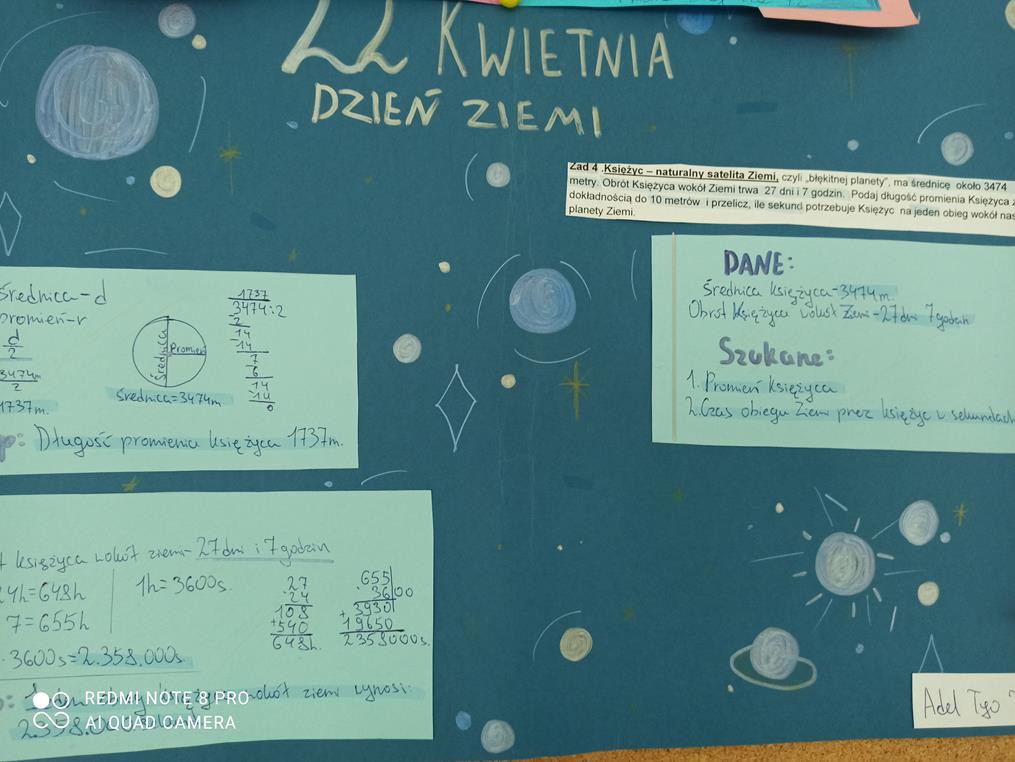 22 KWIETNIA
DZIEŃ ZIEMI
Zad 4 .Księżyc – naturalny satelita Ziemi, czyli „błękitnej planety", ma średnicę około 3474
metry. Obrót Księżyca wokół Ziemi trwa 27 dni i 7 godzin. Podaj długość promienia Księżyca z
dokładnością do 10 metrów i przelicz, ile sekund potrzebuje Księżyc na jeden obieg wokół nas
planety Ziemi.
DANE:
Średnica księżyca-3474m.
Obrót Księżyca wokół Ziemi-27dni 7godzin
Szukane:
1. Promień Księżyca
2.Czas obiegu Ziemi przez księżyc w sekundach
Średnica-d
promień-r
d
2
3474m
2
1737m.
Średnica
Promień
średnica=3474m
1737
3474:2
2
14
-14
7
-6
14
-14
0
: Długość promienia księżyca 1737m.
księżyca wokół ziemi-27dni i 7godzin
24h=648h
7=655h
1h=3600s.
· 3600s=2.358.000s
.27
24
108
+540
648h.
655
3600
3930
+19650
2358000s.
księżyca wokół ziemi wynosi:
2.358.000
REDMI NOTE 8 PRO
AI QUAD CAMERA
Adel Tyo